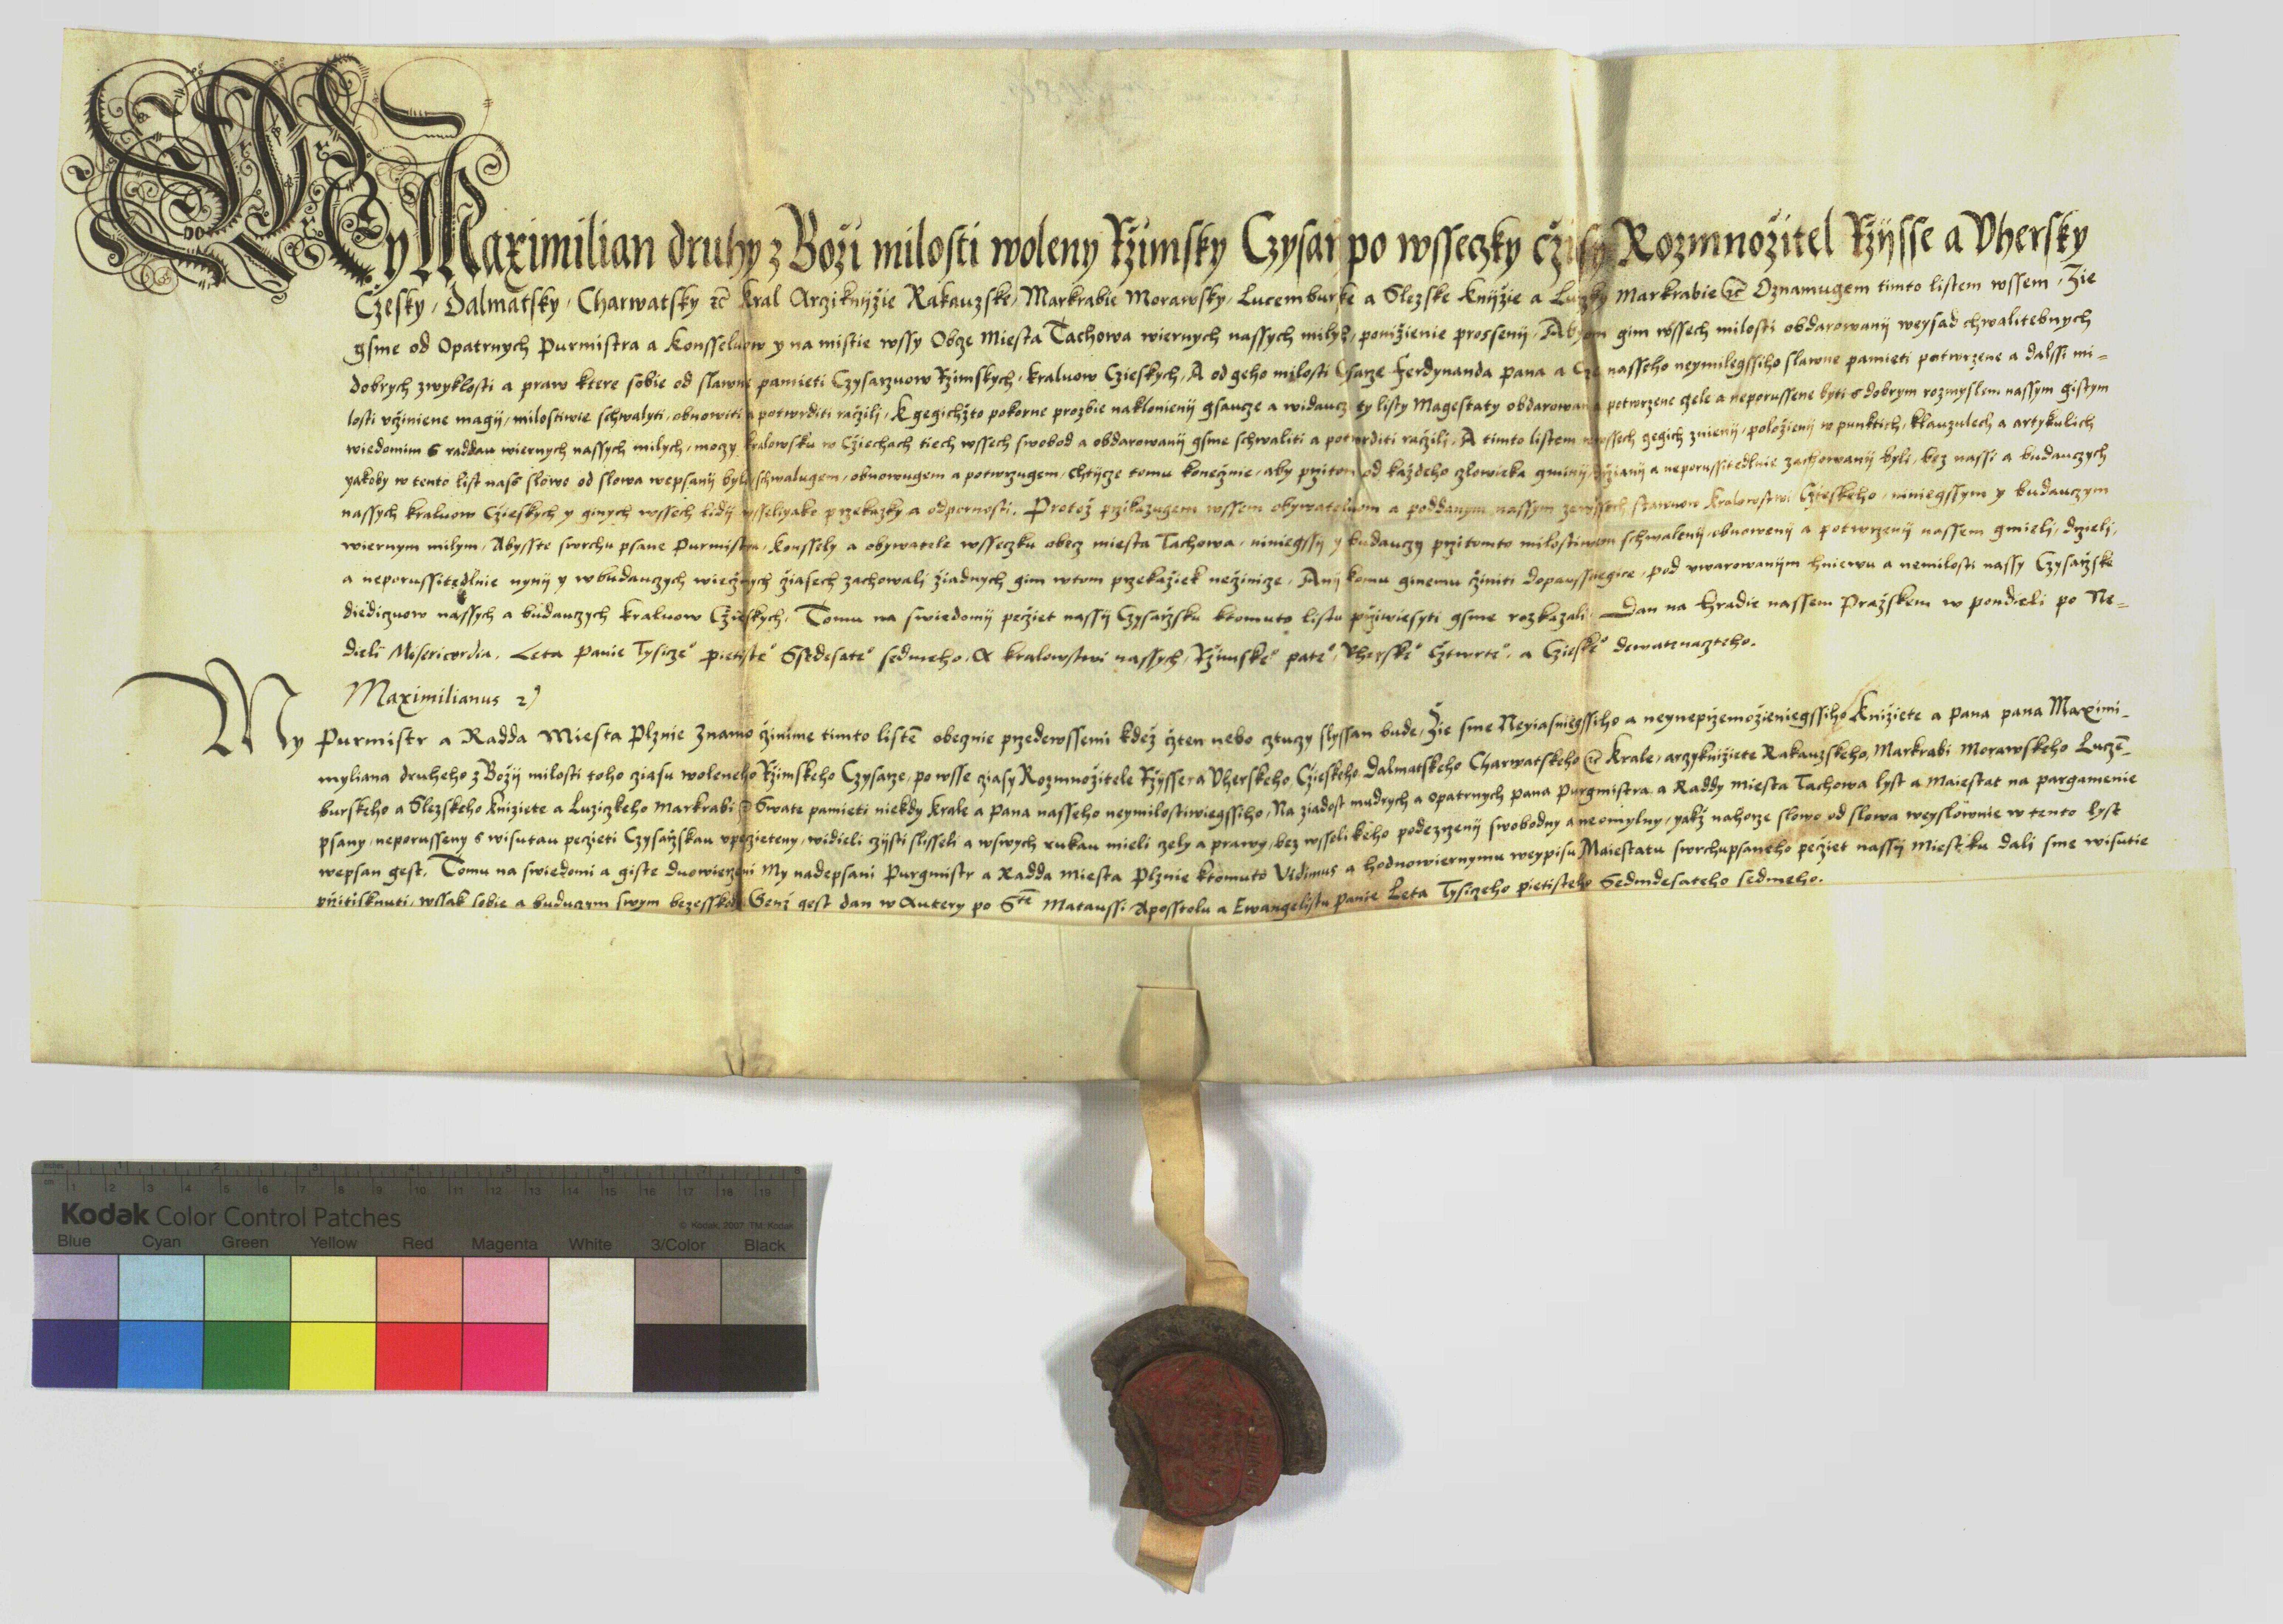 My Maximilian druhy z Boži milosti woleny Ržimsky Czysař po wsseczky čžasy Rozmnožitel Ržijsse a Vhersky
Čžesky, Dalmatsky, Charwatsky ꝛč Kral Arcziknijžie Rakauzske, Markrabie Morawsky, Lucemburke a Slezske Knijžie a Luzky Markrabie ꝛč Oznamugem timto listem wssem, Zie
gsme od Opatrnych Purmistra a Konsseluow y na mistie wssy Obcze Miesta Tachowa wiernych nassych milych, ponižienie prosseny, Abychom gim wssech milosti obdarowanij weysad chwalitebnych
dobrych zwyklosti a praw ktere sobie od slawne pamieti Czysarzuow Ržimskych, kraluow Czieskych, A od geho milosti Csarze Ferdynanda pana a nasseho neymilegssiho slawne pamieti potwrzene a dalssi mi=
losti včžiniene magij, milostiwie schwalyti, obnowiti a potwrditi račzili, K gegichžto pokorne prozbie naklonienij gsaucze a widaucz ty listy Magestaty obdarowani potwrzene czele a neporussene byti s dobrym rozmyslem nassym gistym
wiedomim S raddau wiernych nassych milych, moczy kralowsku w Cžiechach tiech wssech swobod a obdarowanij gsme schwaliti a potwrditi račžili, A timto listem wssech gegich znienij, položienij w punktich, klauzulech a artykulich
yakoby w tento list nass slowo od slowa wepsanij byli schwalugem, obnowugem a potwrzugem, chtijcze tomu konečžnie, aby pržitom od každeho człowieka gminij držianij a neporussitedlnie zachowanij byli, bez nassi a budauczych
nassych kraluow Cžieskych y ginych wssech lidij wsselijake przekazky a odpornosti. Protož přikazugem wssem obywateluom a poddanym nassym ze wssech stawuow Kralowstwi Cžieskeho, niniegssym y budauczym
wiernym milym, Abysste swrchu psane Purmistra, Konssely a obywatele wsseczku obecz miesta Tachowa, niniegssij y budauczy pržitomto milostiwem schwalenij, obnowenij a potwrzenij nassem gmieli, drzieli,
a neporussitedlnie nynij y w budauczych wiečžnych čžiasech zachowali žiadnych gim w tom przekažiek nečžinicze, Anij komu ginemu čžiniti dopausstiegice, pod vwarowanijm hniewu a nemilosti nassy Czysaržske
diediczuow nassych a budauczych kraluow Cžieskych. Tomu na swiedomij pečžet nassij Czysaržsku ktomuto listu pržiwiesyti gsme rozkazali. Dan na hradie nassem Pražskem w pondieli po Ne=
dieli Misericordia. Leta Panie Tysicze° pietiste° Ssedesate° sedmeho, A kralowstwi nassych, Ržimske° pate°, Vherske° čžtwrte°, a Czieske° dewatenazteho.
Maximilianus 2)
My Purmistr a Radda Miesta Plznie Znamo čžinime timto listē obegnie przedewssemi kdež čžten nebo cztuczy slyssan bude, Žie sme Neyiasniegssiho a neynepržemožieniegssiho Knižiete a pana pana Maximi=
myliana druheho z Božij milosti toho cziasu woleneho Ržimskeho Czysarze, po wsse cziasy Rozmnožitele Ržysse a Vherskeho, Cžieskeho, Dalmatskeho Charwatskeho ꝛč Krale, arzyknižiete Rakauzskeho, Markrabi Morawskeho Luczē=
burskeho a Slezskeho Knižiete a Luziczkeho Markrabi ꝛč Swate pamieti niekdy Krale a Pana nasseho neymilostiwiegssiho, Na ziadost mudrych a opatrnych pana Purgmistra a Raddy miesta Tachowa lyst a Maiestat na pargamenie
psany, neporusseny s wisutau peczieti Czysaržskau vpeczieteny, widieli czijsti slisseli a wswych rukau mieli czely a prawy, bez wsselikeho podezrzenij swobodny a neomylny, yakž nahorze slowo od slowa weyslownie w tento lyst
wepsan gest. Tomu na swiedomi a giste duowierzeni My nadepsani Purgmistr a Radda miesta Plznie ktomuto Vidimus a hodnowiernymu weypisu Maiestatu swrchupsaneho pečžiet nassij Miestsku dali sme wisutie
pržitisknuti, wssak sobie a buducym swym bezesskody. Genž gest dan w Autery po Stē Mataussi Aposstolu a Ewangelistu Panie Leta Tysiczeho pietisteho Sedmdesateho sedmeho.
inches
cm 1 2 3 4 5 6 7 8 9 10 11 12 13 14 15 16 17 18 19
Kodak Color Control Patches
© Kodak, 2007 TM: Kodak
Blue Cyan Green Yellow Red Magenta White 3/Color Black